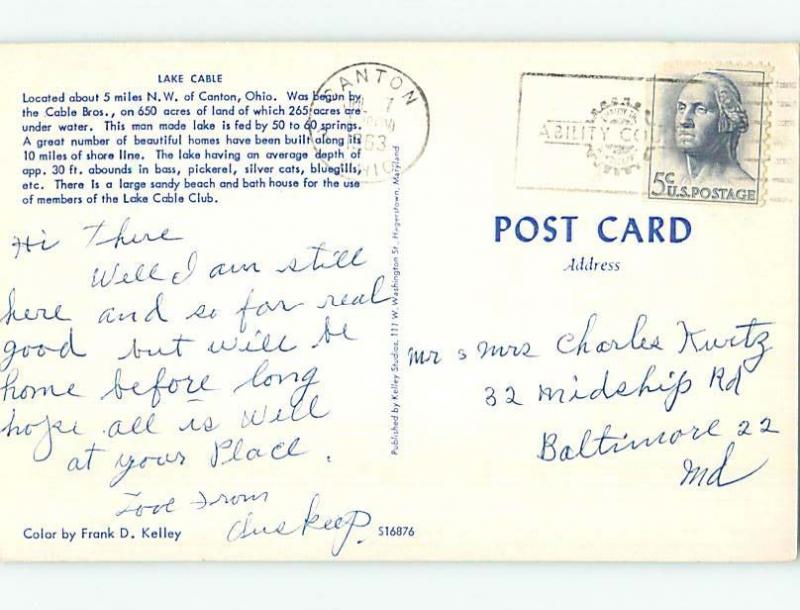 LAKE CABLE
Located about 5 miles N.W. of Canton, Ohio. Was begun by
the Cable Bros., on 650 acres of land of which 265 acres are
under water. This man made lake is fed by 50 to 60 springs.
A great number of beautiful homes have been built along its
10 miles of shore line. The lake having an average depth of
app. 30 ft. abounds in bass, pickerel, silver cats, bluegills,
etc. There is a large sandy beach and bath house for the use
of members of the Lake Cable Club.
Hi There
Well I am still
here and so far real
good but will be
home before long
hope all is Well
at your Place.
Love From
Color by Frank D. Kelley
S16876
Published by Kelley Studios, 111 W. Washington St., Hagerstown, Maryland
CANTON
1963
OHIO
ABILITY CO
5c U.S. POSTAGE
POST CARD
Address
Mr & Mrs Charles Kurtz
32 Midship Rd
Baltimore 22
Md